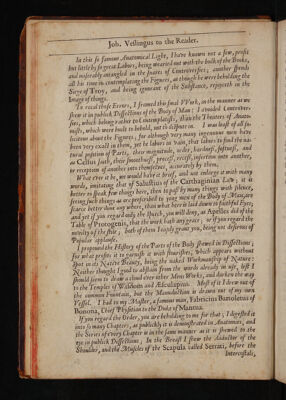 Joh. Veslingus to the Reader.
In this so famous Anatomical Light, I have known not a few, profit
but little by so great Labors, being wearied out with the bulk of the Books,
and miserably intangled in the Snares of Controversies; another spends
all his time in contemplating the Figures, as though he were beholding the
Siege of Troy, and being ignorant of the Substance, reposeth in the
Image of things.
To recal those Errors, I framed this smal VVork, in the manner as we
shew it in publick Dissections of the Body of Man: I avoided Controver-
sies, which belong rather to Contemplatists, than the Theaters of Anato-
mists, which were built to behold, not to dispute in. I was less of all so-
licitous about the Figures; for although very many ingenuous men have
been very exact in them, yet he labors in vain, that labors to find the na-
tural position of Parts, their magnitude, order, hardness, softness, and
as Celsus saith, their smoothness, process, recess, insertion into another,
or reception of another into themselves, accurately by them.
What ever it be, we would have it brief, and not enlarge it with many
words, imitating that of Salustius of the Carthaginian Law; it is
better to speak few things here, than to pass by many things with silence,
seeing such things as are profitable to yong men of the Body of Man, are
scarce better done any where, than what here is laid down to faithful Eyes;
and yet if you regard only the Speech, you will deny, as Apelles did of the
Table of Protogenis, that the work hath any grace; or if you regard the
novelty of the stile; both of them I easily grant you, being not desirous of
Popular applause.
I propounded the History of the Parts of the Body shewed in Dissections;
for what profits it to garnish it with flourishes, which appears without
spot in its Native Beauty, being the naked Workmanship of Nature:
Neither thought I good to abstain from the words already in use, lest I
should seem to draw a cloud over other Mens Works, and darken the way
to the Temples of Wisdom and Æsculapius. Most of it I drew out of
the common Fountain, but the Manuduction is drawn out of my own
Vessel. I had to my Master, a famous man, Fabricius Bartoletus of
Bononia, Chief Physitian to the Duke of Mantua.
If you regard the Order, you are beholding to me for that; I digested it
into so many Chapters, as publickly it is demonstrated in Anatomies, and
the Series of every Chapter is in the same manner as it is shewed to the
eye in publick Dissections; In the Breast I shew the Adductor of the
Shoulder, and the Muscles of the Scapula called Serrati, before the
Intercostals,